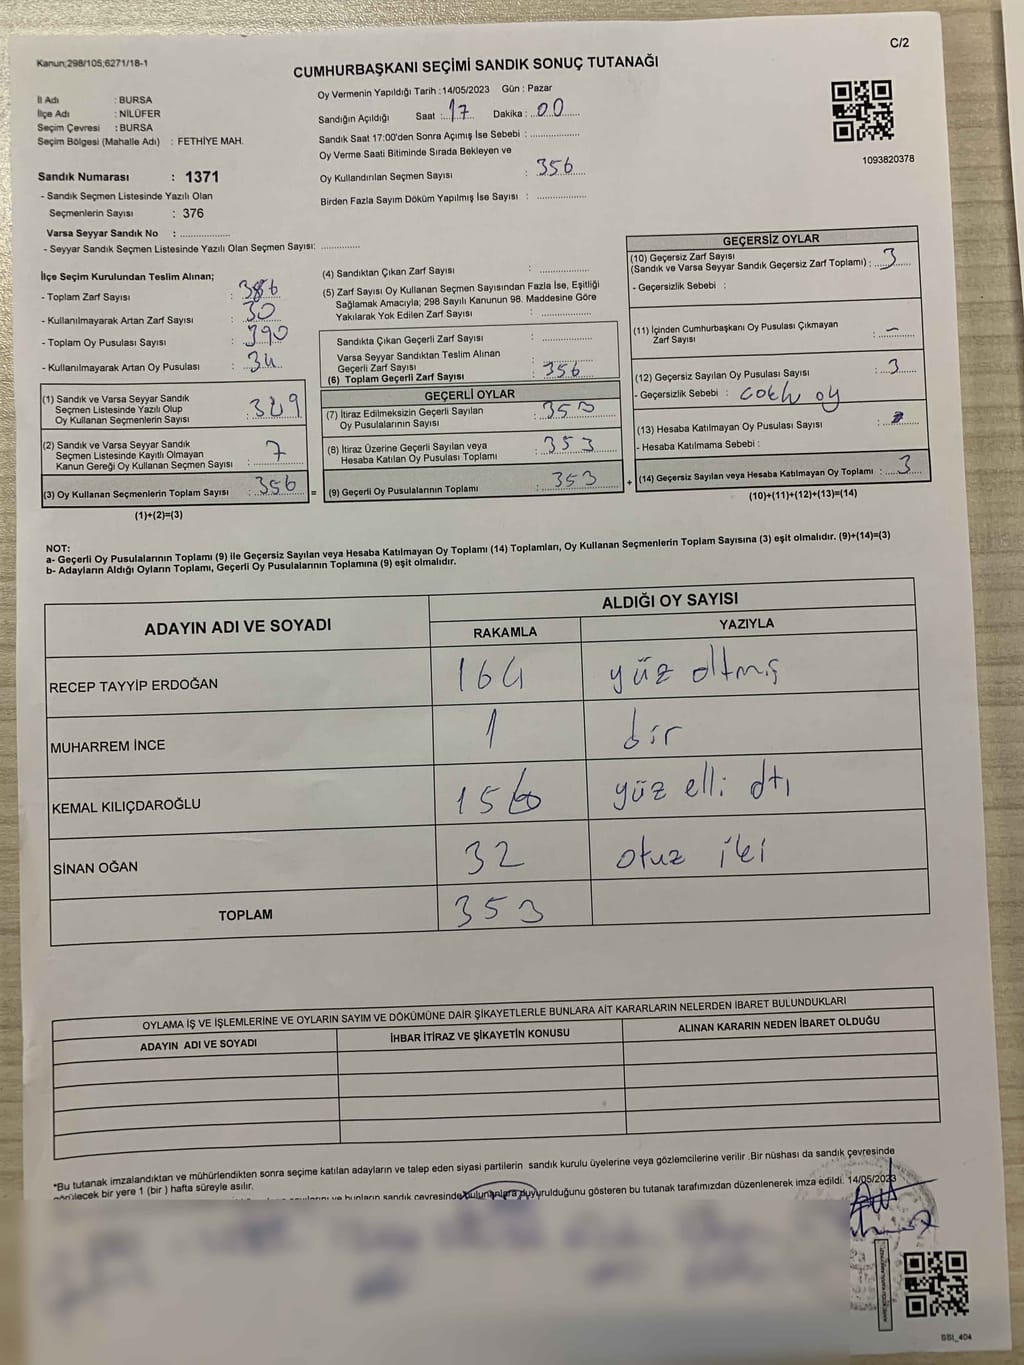 C/2
Kanun;298/105;6271/18-1
CUMHURBAŞKANI SEÇİMİ SANDIK SONUÇ TUTANAĞI
İl Adı : BURSA
İlçe Adı : NİLÜFER
Seçim Çevresi : BURSA
Seçim Bölgesi (Mahalle Adı) : FETHİYE MAH.
Sandık Numarası : 1371
- Sandık Seçmen Listesinde Yazılı Olan
Seçmenlerin Sayısı : 376
Varsa Seyyar Sandık No :
- Seyyar Sandık Seçmen Listesinde Yazılı Olan Seçmen Sayısı:
Oy Vermenin Yapıldığı Tarih :14/05/2023 Gün : Pazar
Sandığın Açıldığı Saat : 17 Dakika : 00
Sandık Saat 17:00'den Sonra Açımış İse Sebebi :
Oy Verme Saati Bitiminde Sırada Bekleyen ve
Oy Kullandırılan Seçmen Sayısı : 356
Birden Fazla Sayım Döküm Yapılmış İse Sayısı :
1093820378
İlçe Seçim Kurulundan Teslim Alınan;
- Toplam Zarf Sayısı : 386
- Kullanılmayarak Artan Zarf Sayısı : 30
- Toplam Oy Pusulası Sayısı : 390
- Kullanılmayarak Artan Oy Pusulası : 34
(1) Sandık ve Varsa Seyyar Sandık
Seçmen Listesinde Yazılı Olup
Oy Kullanan Seçmenlerin Sayısı : 349
(2) Sandık ve Varsa Seyyar Sandık
Seçmen Listesinde Kayıtlı Olmayan
Kanun Gereği Oy Kullanan Seçmen Sayısı : 7
(3) Oy Kullanan Seçmenlerin Toplam Sayısı : 356
(1)+(2)=(3)
(4) Sandıktan Çıkan Zarf Sayısı :
(5) Zarf Sayısı Oy Kullanan Seçmen Sayısından Fazla İse, Eşitliği
Sağlamak Amacıyla; 298 Sayılı Kanunun 98. Maddesine Göre
Yakılarak Yok Edilen Zarf Sayısı :
Sandıkta Çıkan Geçerli Zarf Sayısı :
Varsa Seyyar Sandıktan Teslim Alınan
Geçerli Zarf Sayısı :
(6) Toplam Geçerli Zarf Sayısı : 356
GEÇERLİ OYLAR
(7) İtiraz Edilmeksizin Geçerli Sayılan
Oy Pusulalarının Sayısı : 353
(8) İtiraz Üzerine Geçerli Sayılan veya
Hesaba Katılan Oy Pusulası Toplamı : 353
= (9) Geçerli Oy Pusulalarının Toplamı : 353
GEÇERSİZ OYLAR
(10) Geçersiz Zarf Sayısı
(Sandık ve Varsa Seyyar Sandık Geçersiz Zarf Toplamı) : 3
- Geçersizlik Sebebi :
(11) İçinden Cumhurbaşkanı Oy Pusulası Çıkmayan
Zarf Sayısı : –
(12) Geçersiz Sayılan Oy Pusulası Sayısı : 3
- Geçersizlik Sebebi : oy
(13) Hesaba Katılmayan Oy Pusulası Sayısı :
- Hesaba Katılmama Sebebi :
+ (14) Geçersiz Sayılan veya Hesaba Katılmayan Oy Toplamı : 3
(10)+(11)+(12)+(13)=(14)
NOT:
a- Geçerli Oy Pusulalarının Toplamı (9) ile Geçersiz Sayılan veya Hesaba Katılmayan Oy Toplamı (14) Toplamları, Oy Kullanan Seçmenlerin Toplam Sayısına (3) eşit olmalıdır. (9)+(14)=(3)
b- Adayların Aldığı Oyların Toplamı, Geçerli Oy Pusulalarının Toplamına (9) eşit olmalıdır.
ADAYIN ADI VE SOYADI
ALDIĞI OY SAYISI
RAKAMLA YAZIYLA
RECEP TAYYİP ERDOĞAN 164 yüz altmış
MUHARREM İNCE 1 bir
KEMAL KILIÇDAROĞLU 156 yüz elli altı
SİNAN OĞAN 32 otuz iki
TOPLAM 353
OYLAMA İŞ VE İŞLEMLERİNE VE OYLARIN SAYIM VE DÖKÜMÜNE DAİR ŞİKAYETLERLE BUNLARA AİT KARARLARIN NELERDEN İBARET BULUNDUKLARI
ADAYIN ADI VE SOYADI İHBAR İTİRAZ VE ŞİKAYETİN KONUSU ALINAN KARARIN NEDEN İBARET OLDUĞU
*Bu tutanak imzalandıktan ve mühürlendikten sonra seçime katılan adayların ve talep eden siyasi partilerin sandık kurulu üyelerine veya gözlemcilerine verilir .Bir nüshası da sandık çevresinde
görülecek bir yere 1 (bir ) hafta süreyle asılır.
ve bunların sandık çevresinde bulunanlara duyurulduğunu gösteren bu tutanak tarafımızdan düzenlenerek imza edildi. 14/05/2023
SBI_404